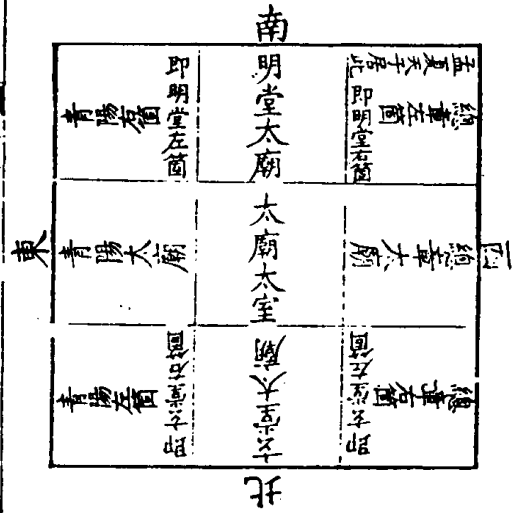 南
孟夏天子居此
總章左箇
即明堂右箇
明堂太廟
即明堂左箇
青陽右箇
西
總章大廟
太廟太室
青陽太廟
東
總章右箇
即玄堂左箇
玄堂大廟
即玄堂右箇
青陽左箇
北